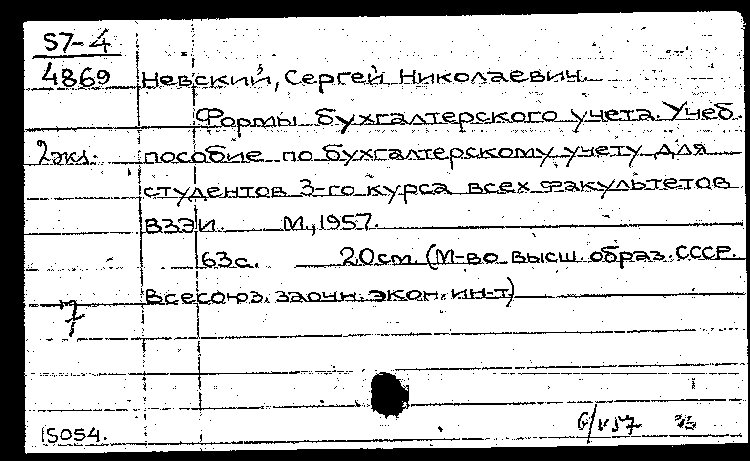 57-4
4869 Невский, Сергей Николаевич.
Формы бухгалтерского учета. Учеб.
2экз. пособие по бухгалтерскому учету для
студентов 3-го курса всех факультетов
ВЗЭИ. М., 1957.
63с. 20см. (М-во высш. образ. СССР.
Всесоюз. заочн. экон. ин-т)
7
15054.